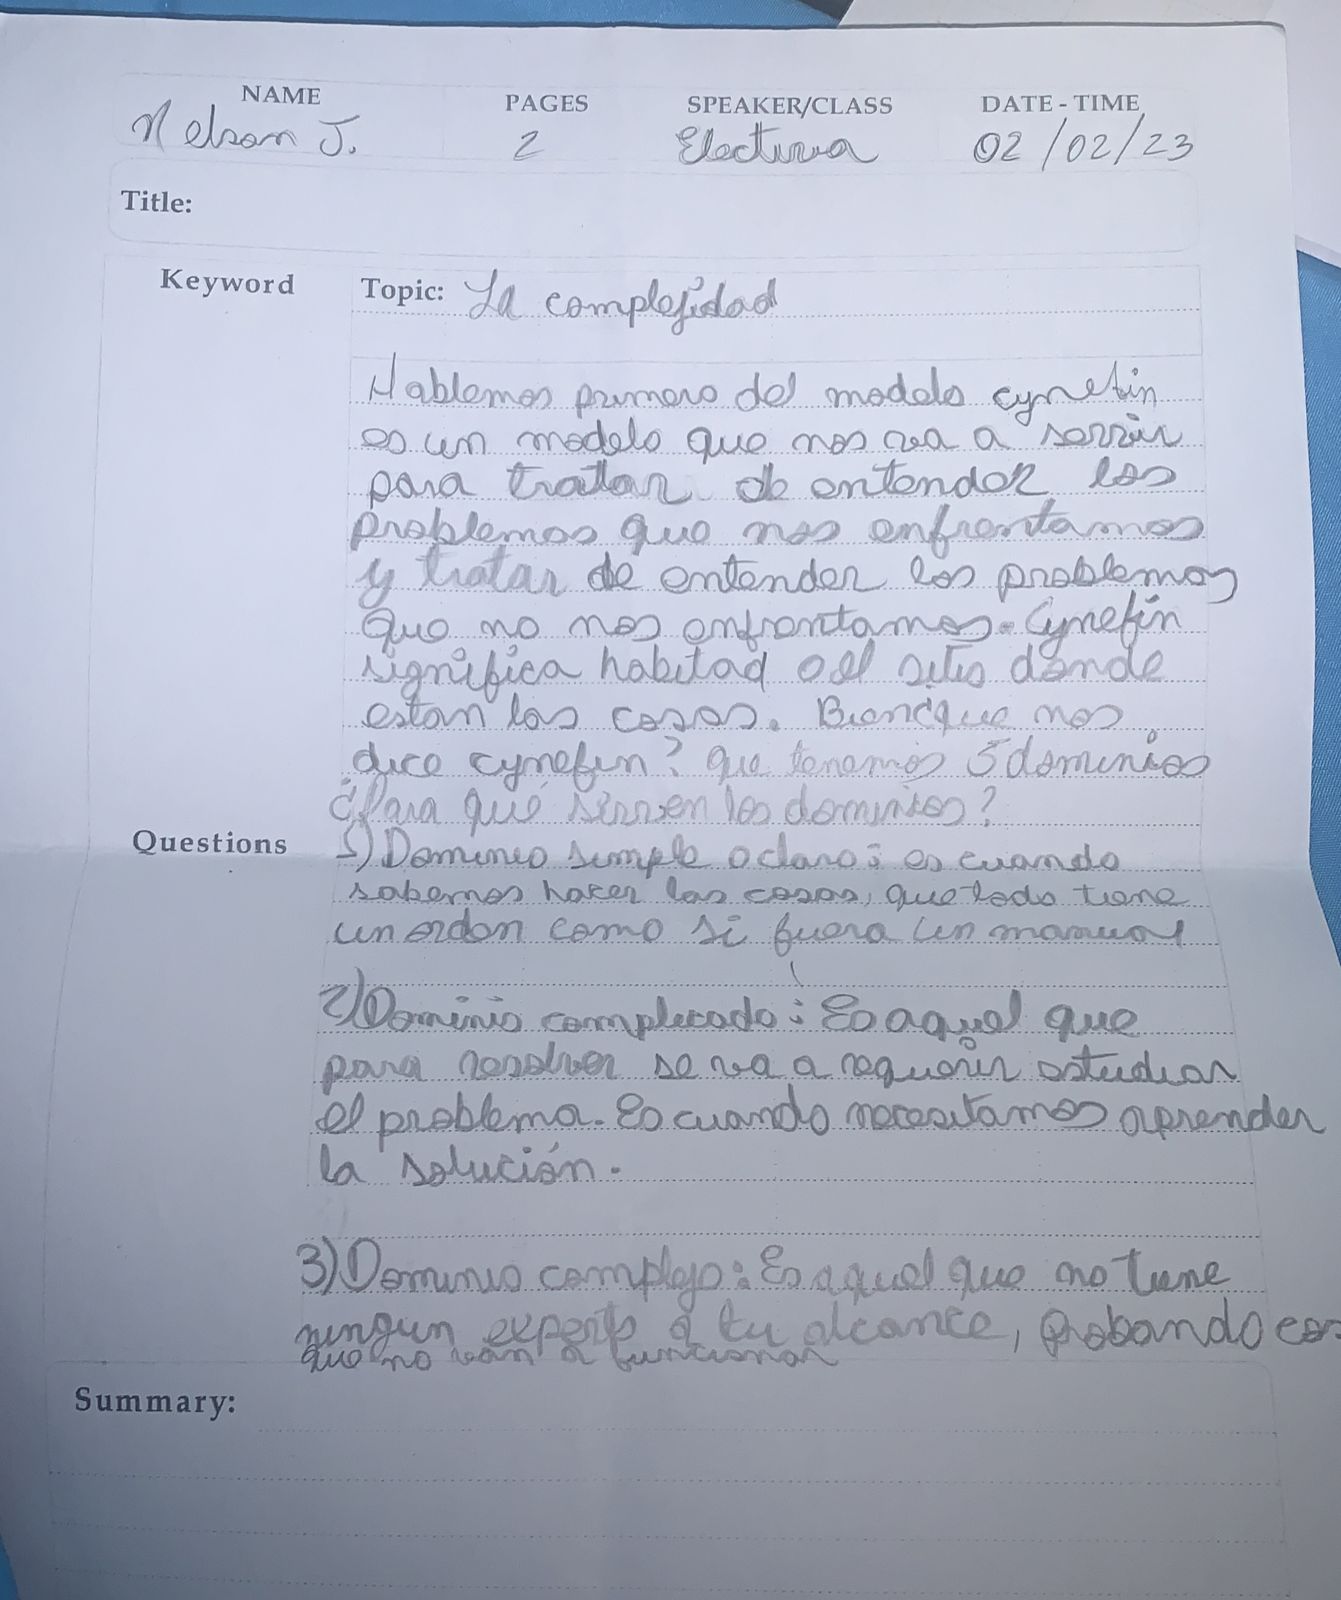 NAME PAGES SPEAKER/CLASS DATE - TIME
Nelson J. 2 Electiva 02/02/23
Title:
Keyword Topic: La complejidad
Hablemos primero del modelo cynefin
es un modelo que nos va a servir
para tratar de entender los
problemas que nos enfrentamos
y tratar de entender los problemas
que no nos enfrentamos. Cynefin
significa habitad o el sitio donde
estan las cosas. Bien ¿que nos
dice cynefin? que tenemos 5 dominios
¿Para qué sirven los dominios?
Questions 1) Dominio simple o claro: es cuando
sabemos hacer las cosas, que todo tiene
un orden como si fuera un manual
2) Dominio complicado: Es aquel que
para resolver se va a requerir estudiar
el problema. Es cuando necesitamos aprender
la solución.
3) Dominio complejo: Es aquel que no tiene
ningun experto a tu alcance, probando cos
que no van a funcionar
Summary: